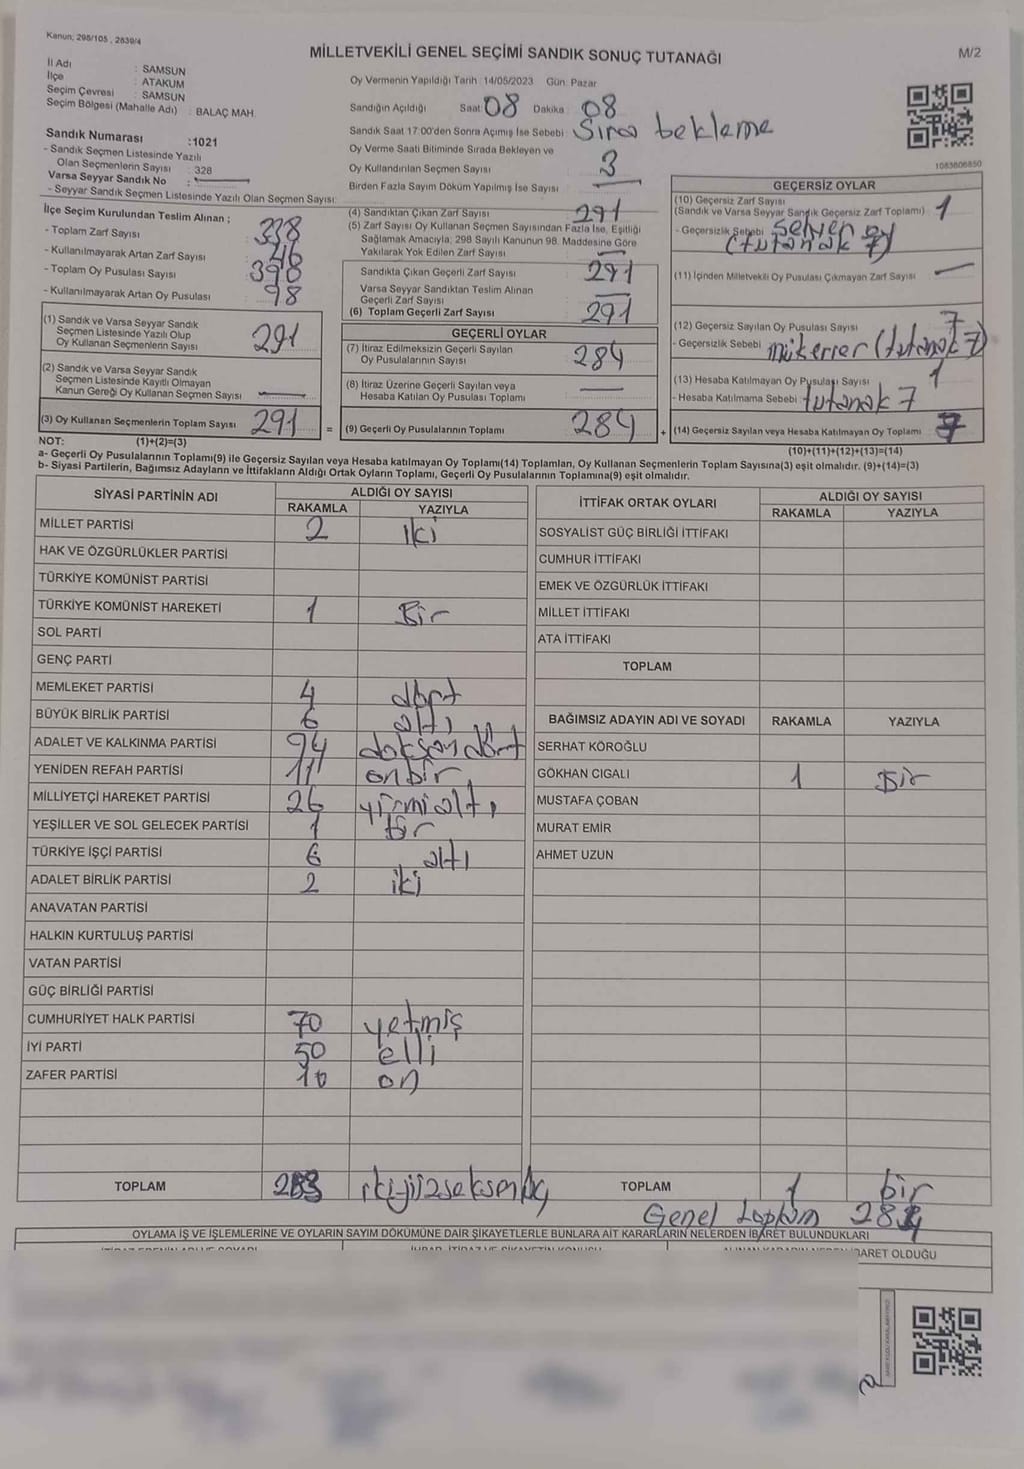 Kanun; 298/105 , 2839/4
MİLLETVEKİLİ GENEL SEÇİMİ SANDIK SONUÇ TUTANAĞI
M/2
İl Adı : SAMSUN
İlçe : ATAKUM
Seçim Çevresi : SAMSUN
Seçim Bölgesi (Mahalle Adı) : BALAÇ MAH.
Oy Vermenin Yapıldığı Tarih 14/05/2023 Gün: Pazar
Sandığın Açıldığı Saat 08 Dakika : 08
Sandık Saat 17:00'den Sonra Açımış İse Sebebi : Sıra bekleme
Oy Verme Saati Bitiminde Sırada Bekleyen ve
Oy Kullandırılan Seçmen Sayısı 3
Birden Fazla Sayım Döküm Yapılmış İse Sayısı
Sandık Numarası :1021
- Sandık Seçmen Listesinde Yazılı
Olan Seçmenlerin Sayısı : 328
Varsa Seyyar Sandık No :
- Seyyar Sandık Seçmen Listesinde Yazılı Olan Seçmen Sayısı:
1083606850
İlçe Seçim Kurulundan Teslim Alınan ;
- Toplam Zarf Sayısı 338
- Kullanılmayarak Artan Zarf Sayısı : 46
- Toplam Oy Pusulası Sayısı 398
- Kullanılmayarak Artan Oy Pusulası 98
(1) Sandık ve Varsa Seyyar Sandık
Seçmen Listesinde Yazılı Olup
Oy Kullanan Seçmenlerin Sayısı 291
(2) Sandık ve Varsa Seyyar Sandık
Seçmen Listesinde Kayıtlı Olmayan
Kanun Gereği Oy Kullanan Seçmen Sayısı
(3) Oy Kullanan Seçmenlerin Toplam Sayısı 291 =
(4) Sandıktan Çıkan Zarf Sayısı 291
(5) Zarf Sayısı Oy Kullanan Seçmen Sayısından Fazla İse, Eşitliği
Sağlamak Amacıyla; 298 Sayılı Kanunun 98. Maddesine Göre
Yakılarak Yok Edilen Zarf Sayısı
Sandıkta Çıkan Geçerli Zarf Sayısı 291
Varsa Seyyar Sandıktan Teslim Alınan
Geçerli Zarf Sayısı
(6) Toplam Geçerli Zarf Sayısı 291
GEÇERLİ OYLAR
(7) İtiraz Edilmeksizin Geçerli Sayılan
Oy Pusulalarının Sayısı 284
(8) İtiraz Üzerine Geçerli Sayılan veya
Hesaba Katılan Oy Pusulası Toplamı
(9) Geçerli Oy Pusulalarının Toplamı 284 +
GEÇERSİZ OYLAR
(10) Geçersiz Zarf Sayısı
(Sandık ve Varsa Seyyar Sandık Geçersiz Zarf Toplamı) 1
- Geçersizlik Sebebi
(tutanak 7)
(11) İçinden Milletvekili Oy Pusulası Çıkmayan Zarf Sayısı
(12) Geçersiz Sayılan Oy Pusulası Sayısı 7
- Geçersizlik Sebebi mükerrer (tutanak 7)
(13) Hesaba Katılmayan Oy Pusulası Sayısı 1
- Hesaba Katılmama Sebebi tutanak 7
(14) Geçersiz Sayılan veya Hesaba Katılmayan Oy Toplamı 7
NOT: (1)+(2)=(3)
(10)+(11)+(12)+(13)=(14)
a- Geçerli Oy Pusulalarının Toplamı(9) ile Geçersiz Sayılan veya Hesaba katılmayan Oy Toplamı(14) Toplamları, Oy Kullanan Seçmenlerin Toplam Sayısına(3) eşit olmalıdır. (9)+(14)=(3)
b- Siyasi Partilerin, Bağımsız Adayların ve İttifakların Aldığı Ortak Oyların Toplamı, Geçerli Oy Pusulalarının Toplamına(9) eşit olmalıdır.
SİYASİ PARTİNİN ADI ALDIĞI OY SAYISI
RAKAMLA YAZIYLA
MİLLET PARTİSİ 2 iki
HAK VE ÖZGÜRLÜKLER PARTİSİ
TÜRKİYE KOMÜNİST PARTİSİ
TÜRKİYE KOMÜNİST HAREKETİ 1 Bir
SOL PARTİ
GENÇ PARTİ
MEMLEKET PARTİSİ 4 dört
BÜYÜK BİRLİK PARTİSİ 6 altı
ADALET VE KALKINMA PARTİSİ 94 doksan dört
YENİDEN REFAH PARTİSİ 11 onbir
MİLLİYETÇİ HAREKET PARTİSİ 26 yirmialtı
YEŞİLLER VE SOL GELECEK PARTİSİ 1 bir
TÜRKİYE İŞÇİ PARTİSİ 6 altı
ADALET BİRLİK PARTİSİ 2 iki
ANAVATAN PARTİSİ
HALKIN KURTULUŞ PARTİSİ
VATAN PARTİSİ
GÜÇ BİRLİĞİ PARTİSİ
CUMHURİYET HALK PARTİSİ 70 yetmiş
İYİ PARTİ 50 elli
ZAFER PARTİSİ 10 on
TOPLAM 283 ikiyüzseksenüç
İTTİFAK ORTAK OYLARI ALDIĞI OY SAYISI
RAKAMLA YAZIYLA
SOSYALİST GÜÇ BİRLİĞİ İTTİFAKI
CUMHUR İTTİFAKI
EMEK VE ÖZGÜRLÜK İTTİFAKI
MİLLET İTTİFAKI
ATA İTTİFAKI
TOPLAM
BAĞIMSIZ ADAYIN ADI VE SOYADI RAKAMLA YAZIYLA
SERHAT KÖROĞLU
GÖKHAN CIGALI 1 Bir
MUSTAFA ÇOBAN
MURAT EMİR
AHMET UZUN
TOPLAM 1 bir
Genel toplam 284
OYLAMA İŞ VE İŞLEMLERİNE VE OYLARIN SAYIM DÖKÜMÜNE DAİR ŞİKAYETLERLE BUNLARA AİT KARARLARIN NELERDEN İBARET BULUNDUKLARI
BARET OLDUĞU